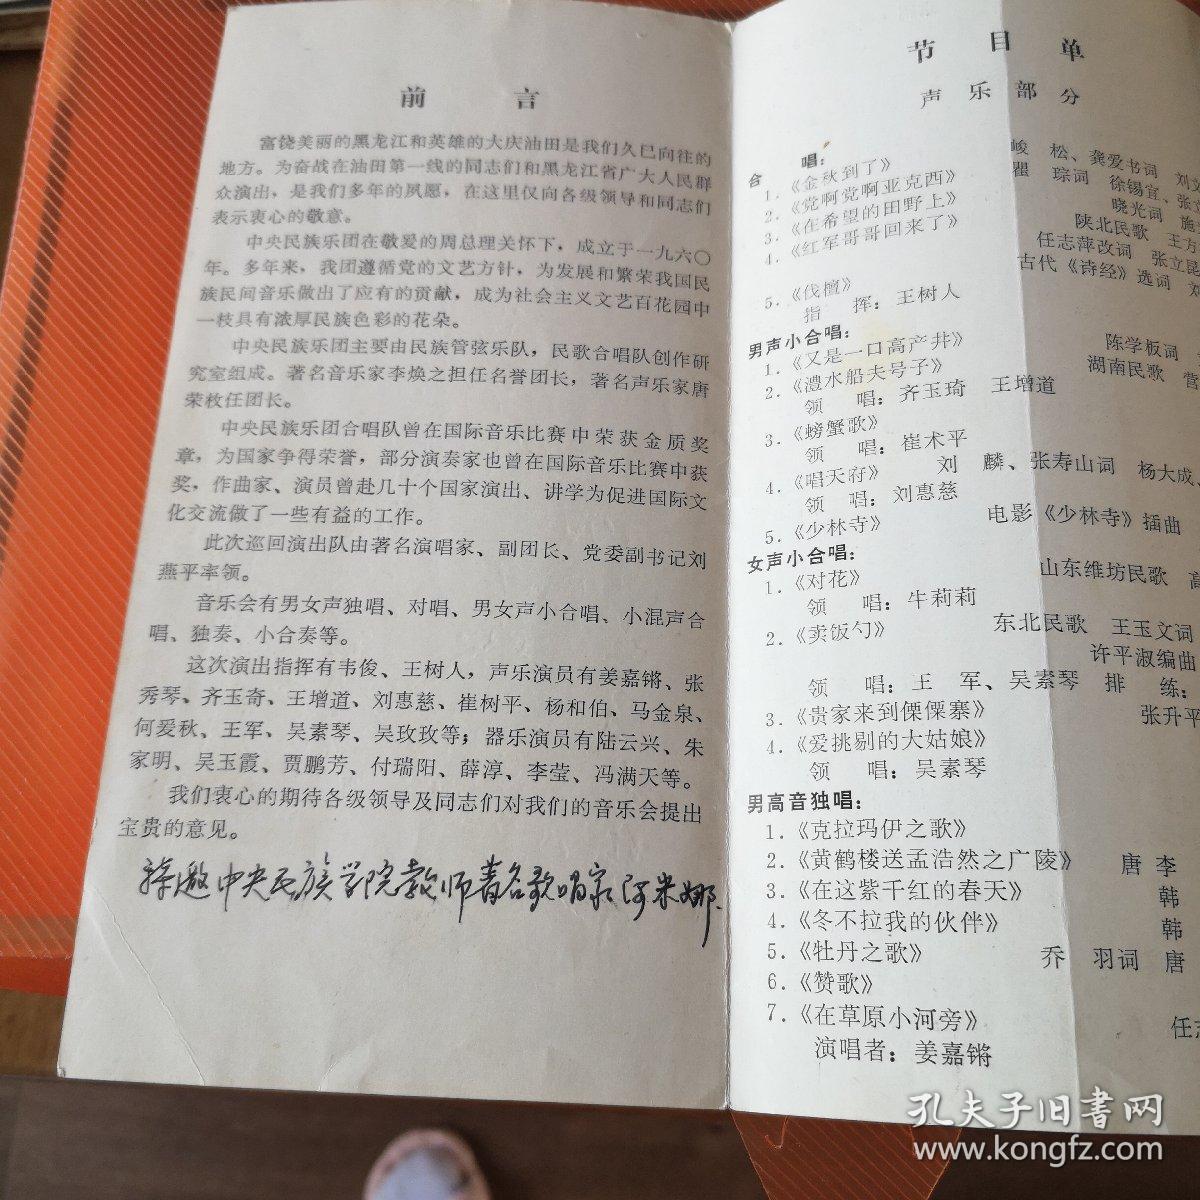 前言
富饶美丽的黑龙江和英雄的大庆油田是我们久已向往的
地方。为奋战在油田第一线的同志们和黑龙江省广大人民群
众演出，是我们多年的夙愿，在这里仅向各级领导和同志们
表示衷心的敬意。
中央民族乐团在敬爱的周总理关怀下，成立于一九六〇
年。多年来，我团遵循党的文艺方针，为发展和繁荣我国民
族民间音乐做出了应有的贡献，成为社会主义文艺百花园中
一枝具有浓厚民族色彩的花朵。
中央民族乐团主要由民族管弦乐队，民歌合唱队创作研
究室组成。著名音乐家李焕之担任名誉团长，著名声乐家唐
荣枚任团长。
中央民族乐团合唱队曾在国际音乐比赛中荣获金质奖
章，为国家争得荣誉，部分演奏家也曾在国际音乐比赛中获
奖，作曲家、演员曾赴几十个国家演出、讲学为促进国际文
化交流做了一些有益的工作。
此次巡回演出队由著名演唱家、副团长、党委副书记刘
燕平率领。
音乐会有男女声独唱、对唱、男女声小合唱、小混声合
唱、独奏、小合奏等。
这次演出指挥有韦俊、王树人，声乐演员有姜嘉锵、张
秀琴、齐玉奇、王增道、刘惠慈、崔树平、杨和伯、马金泉、
何爱秋、王军、吴素琴、吴玫玫等；器乐演员有陆云兴、朱
家明、吴玉霞、贾鹏芳、付瑞阳、薛淳、李莹、冯满天等。
我们衷心的期待各级领导及同志们对我们的音乐会提出
宝贵的意见。
特邀中央民族学院教师著名歌唱家阿米娜.
节目单
声乐部分
合唱：
1.《金秋到了》 峻松、龚爱书词 刘文
2.《党啊党啊亚克西》 瞿琮词 徐锡宜、张立
3.《在希望的田野上》 晓光词 施
4.《红军哥哥回来了》 陕北民歌 王方
任志萍改词 张立昆
5.《伐檀》 古代《诗经》选词 刘
指挥：王树人
男声小合唱：
1.《又是一口高产井》 陈学板词
2.《澧水船夫号子》 湖南民歌 营
领唱：齐玉琦 王增道
3.《螃蟹歌》
领唱：崔术平
4.《唱天府》 刘麟、张寿山词 杨大成、
领唱：刘惠慈
5.《少林寺》 电影《少林寺》插曲
女声小合唱：
1.《对花》 山东维坊民歌 高
领唱：牛莉莉
2.《卖饭勺》 东北民歌 王玉文词
许平淑编曲
领唱：王军、吴素琴 排练：
3.《贵家来到傈僳寨》 张升平
4.《爱挑剔的大姑娘》
领唱：吴素琴
男高音独唱：
1.《克拉玛伊之歌》
2.《黄鹤楼送孟浩然之广陵》 唐 李
3.《在这紫千红的春天》 韩
4.《冬不拉我的伙伴》 韩
5.《牡丹之歌》 乔羽词 唐
6.《赞歌》
7.《在草原小河旁》 任志
演唱者：姜嘉锵
孔夫子旧书网
www.kongfz.com